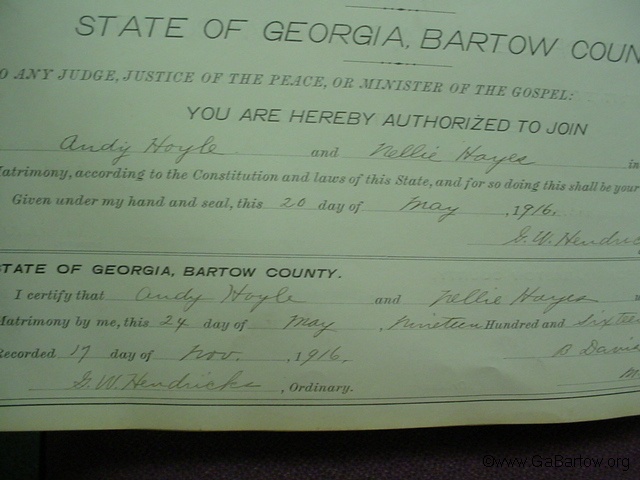 STATE OF GEORGIA, BARTOW COUN
O ANY JUDGE, JUSTICE OF THE PEACE, OR MINISTER OF THE GOSPEL:
YOU ARE HEREBY AUTHORIZED TO JOIN
Andy Hoyle and Nellie Hayes in
Matrimony, according to the Constitution and laws of this State, and for so doing this shall be your
Given under my hand and seal, this 20 day of May , 1916.
G. W. Hendric
STATE OF GEORGIA, BARTOW COUNTY.
I certify that Andy Hoyle and Nellie Hayes
Matrimony by me, this 24 day of May , Nineteen Hundred and Sixteen
Recorded 17 day of Nov. , 1916.
B Davis
G. W. Hendricks , Ordinary.
M.
©www.GaBartow.org